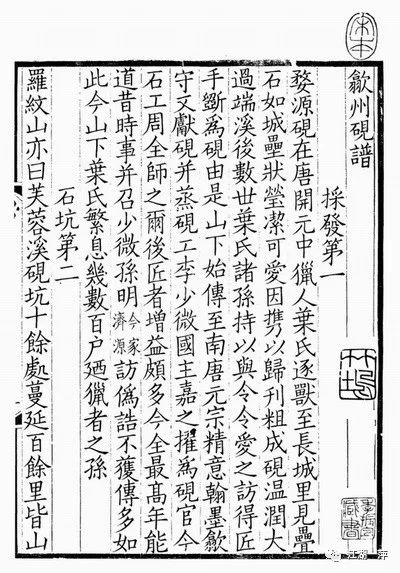 宋本
歙州硯譜
採發第一
婺源硯在唐開元中獵人葉氏逐獸至長城里見疊
石如城壘狀瑩潔可愛因攜以歸刊粗成硯温潤大
過端溪後數世葉氏諸孫持以與令令愛之訪得匠
手斵為硯由是山下始傳至南唐元宗精意翰墨歙
守文獻硯并蒸硯工李少微國主嘉之擢為硯官今
石工周全師之爾後匠者增益頗多今全最髙年能
道昔時事并召少微孫明今家濟源訪僞誥不獲傳多如
此今山下葉氏繁息幾數百户廼獵者之孫
石坑第二
羅紋山亦曰芙蓉溪硯坑十餘處蔓延百餘里皆山
竹塢
季振宜藏書